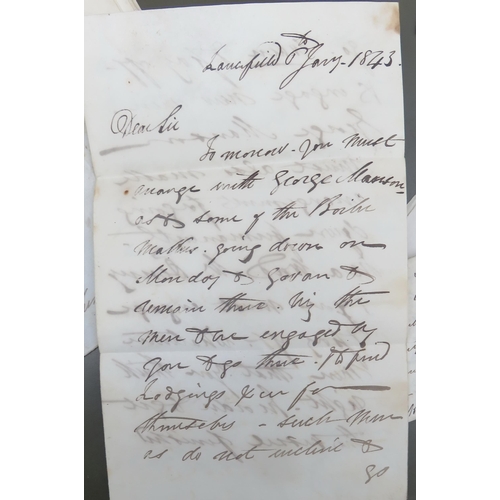 Lancefield 6th Jany. 1843.
Dear Sir
Tomorrow you must
arange with George Mawson
as to some of the Boiler
Makers going down on
Monday to Govan to
remain there. Viz the
men to be engaged by
you to go there. & to find
Lodgings &c for
themselves - such men
as do not incline to
go